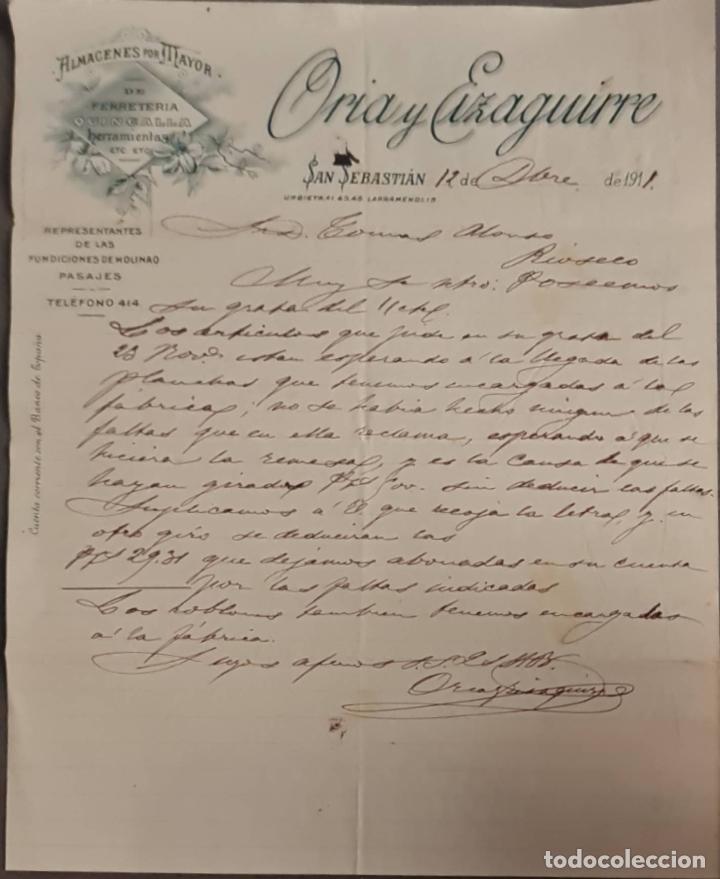 ALMACENES POR MAYOR
DE
FERRETERIA
QUINCALLA
herramientas
ETC ETC
Oria y Eizaguirre
SAN SEBASTIÁN 12 de Dbre de 1911.
URBIETA, 41 43, 45 LARRAMENDI, 15
REPRESENTANTES
DE LAS
FUNDICIONES DE MOLINAO
PASAJES
TELÉFONO 414
Cuenta corriente con el Banco de España
Sr. D. Tomas Alonso
Rioseco
Muy Sr. ntro: Poseemos
su grata del 11 ctel.
Los artículos que pide en su grata del
23 Novbe. estan esperando á la llegada de las
planchas que tenemos encargadas á la
fábrica; no se habia hecho ningun de las
faltas que en ella reclama, esperando á que se
hiciera la remesa, y es la causa de que se
hayan girado Pts sin deducir las faltas.
Suplicamos á V. que recoja la letra, y en
otro giro se deduciran las
Pts 29.31 que dejamos abonadas en su cuenta
por las faltas indicadas
Los tambien tenemos encargadas
á la fábrica.
Suyos afmos S.S. Q.
Oria y Eizaguirre
todocoleccion.net